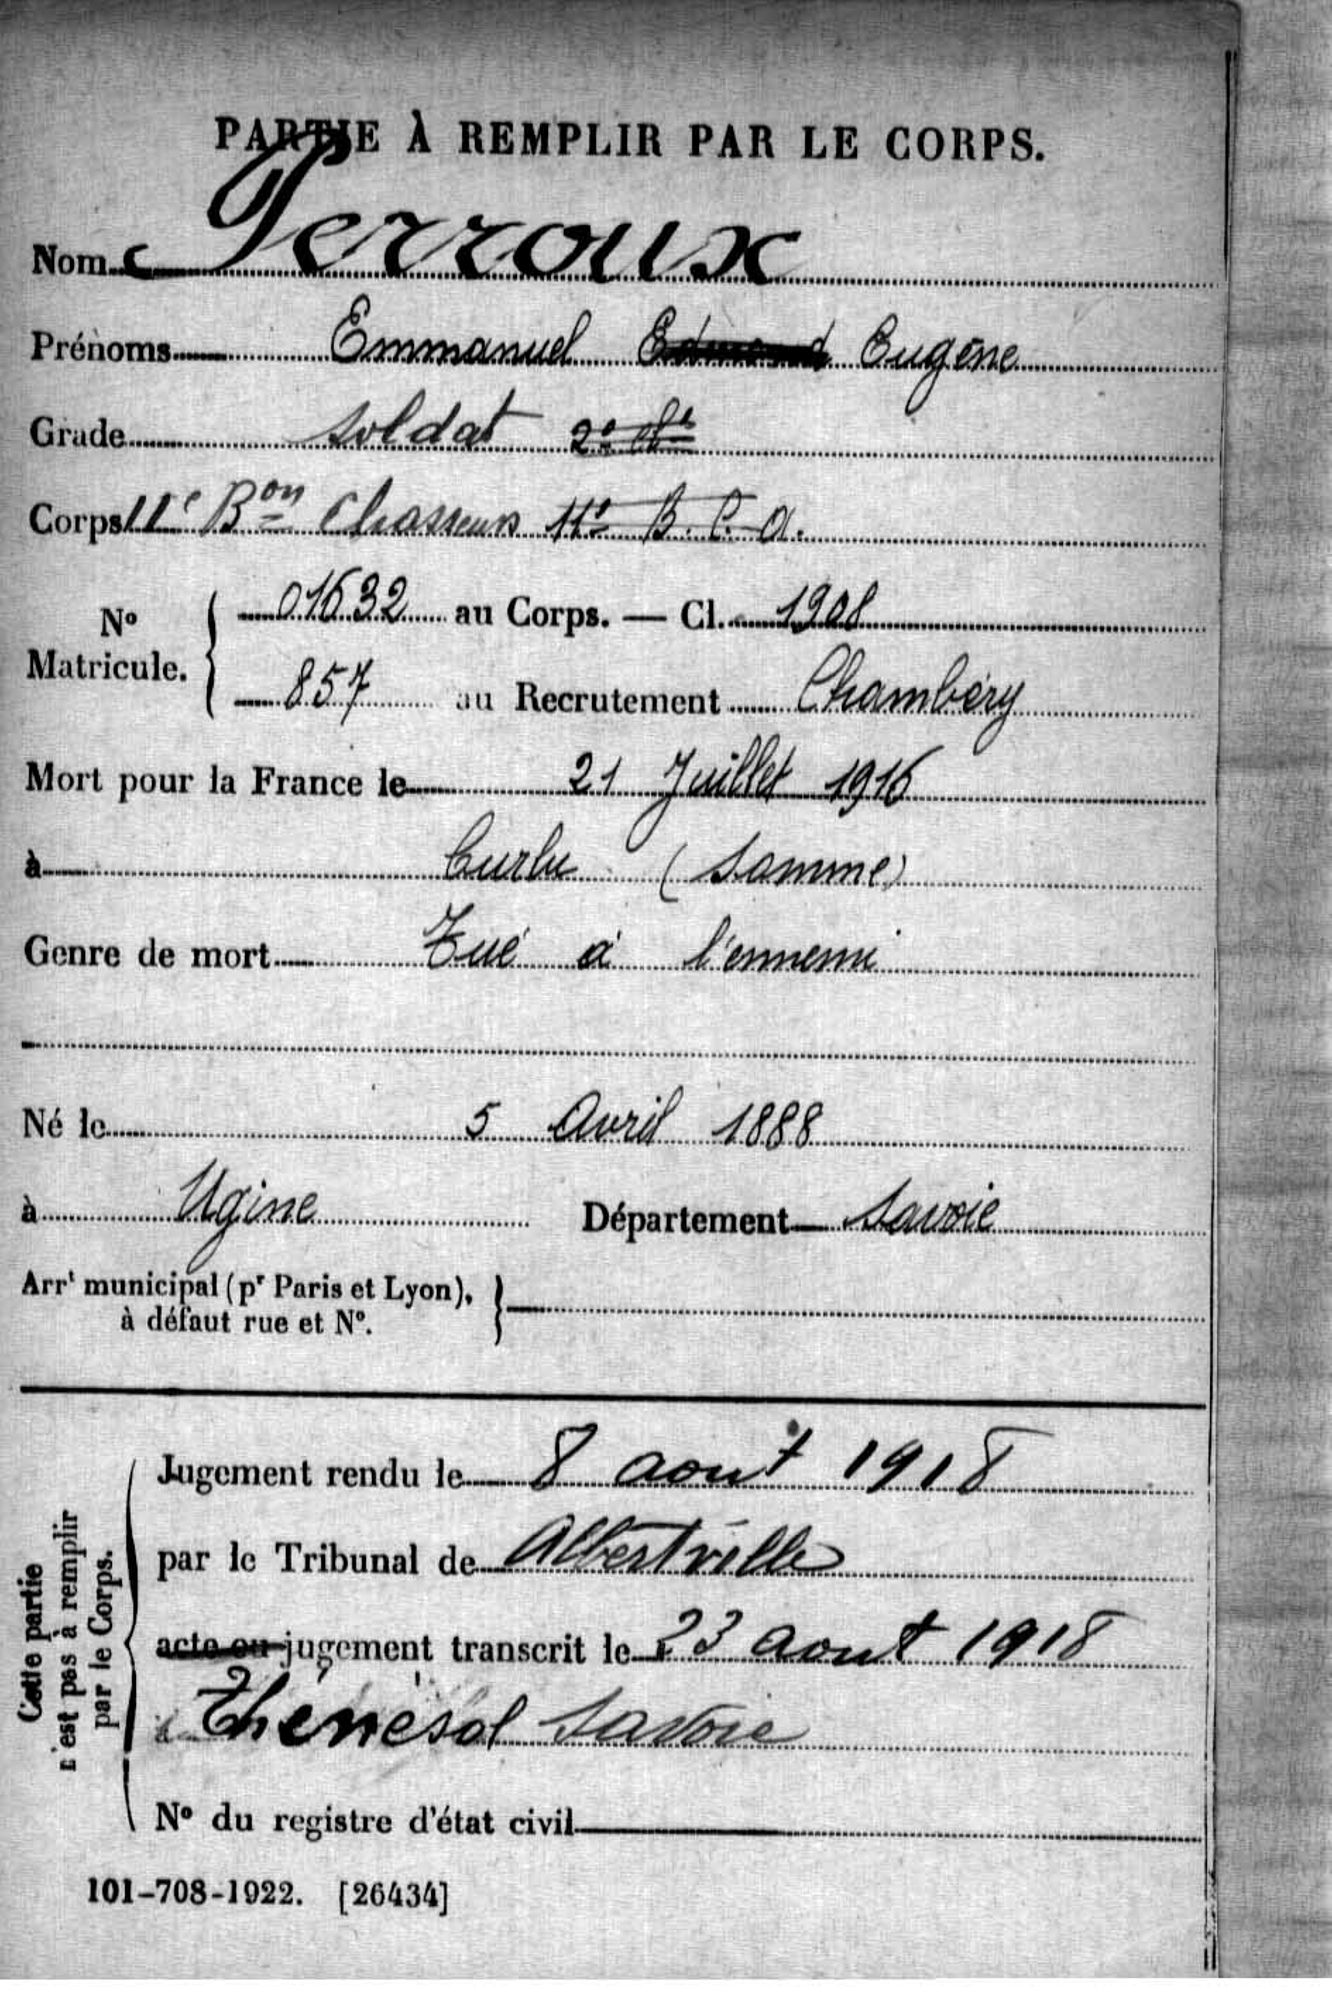 PARTIE À REMPLIR PAR LE CORPS.
Nom Perroux
Prénoms Emmanuel Edmond Eugène
Grade soldat 2e Cl.
Corps 11e Bon Chasseurs 11e B. C. A.
No Matricule. { 01632 au Corps. — Cl. 1908
857 au Recrutement Chambéry
Mort pour la France le 21 Juillet 1916
à Curlu (Somme)
Genre de mort Tué à l'ennemi
Né le 5 Avril 1888
à Ugine Département Savoie
Arrt municipal (pr Paris et Lyon), }
à défaut rue et No.
Cette partie
n'est pas à remplir
par le Corps.
Jugement rendu le 8 aout 1918
par le Tribunal de Albertville
acte ou jugement transcrit le 23 aout 1918
à Thénésol Savoie
No du registre d'état civil
101-708-1922. [26434]